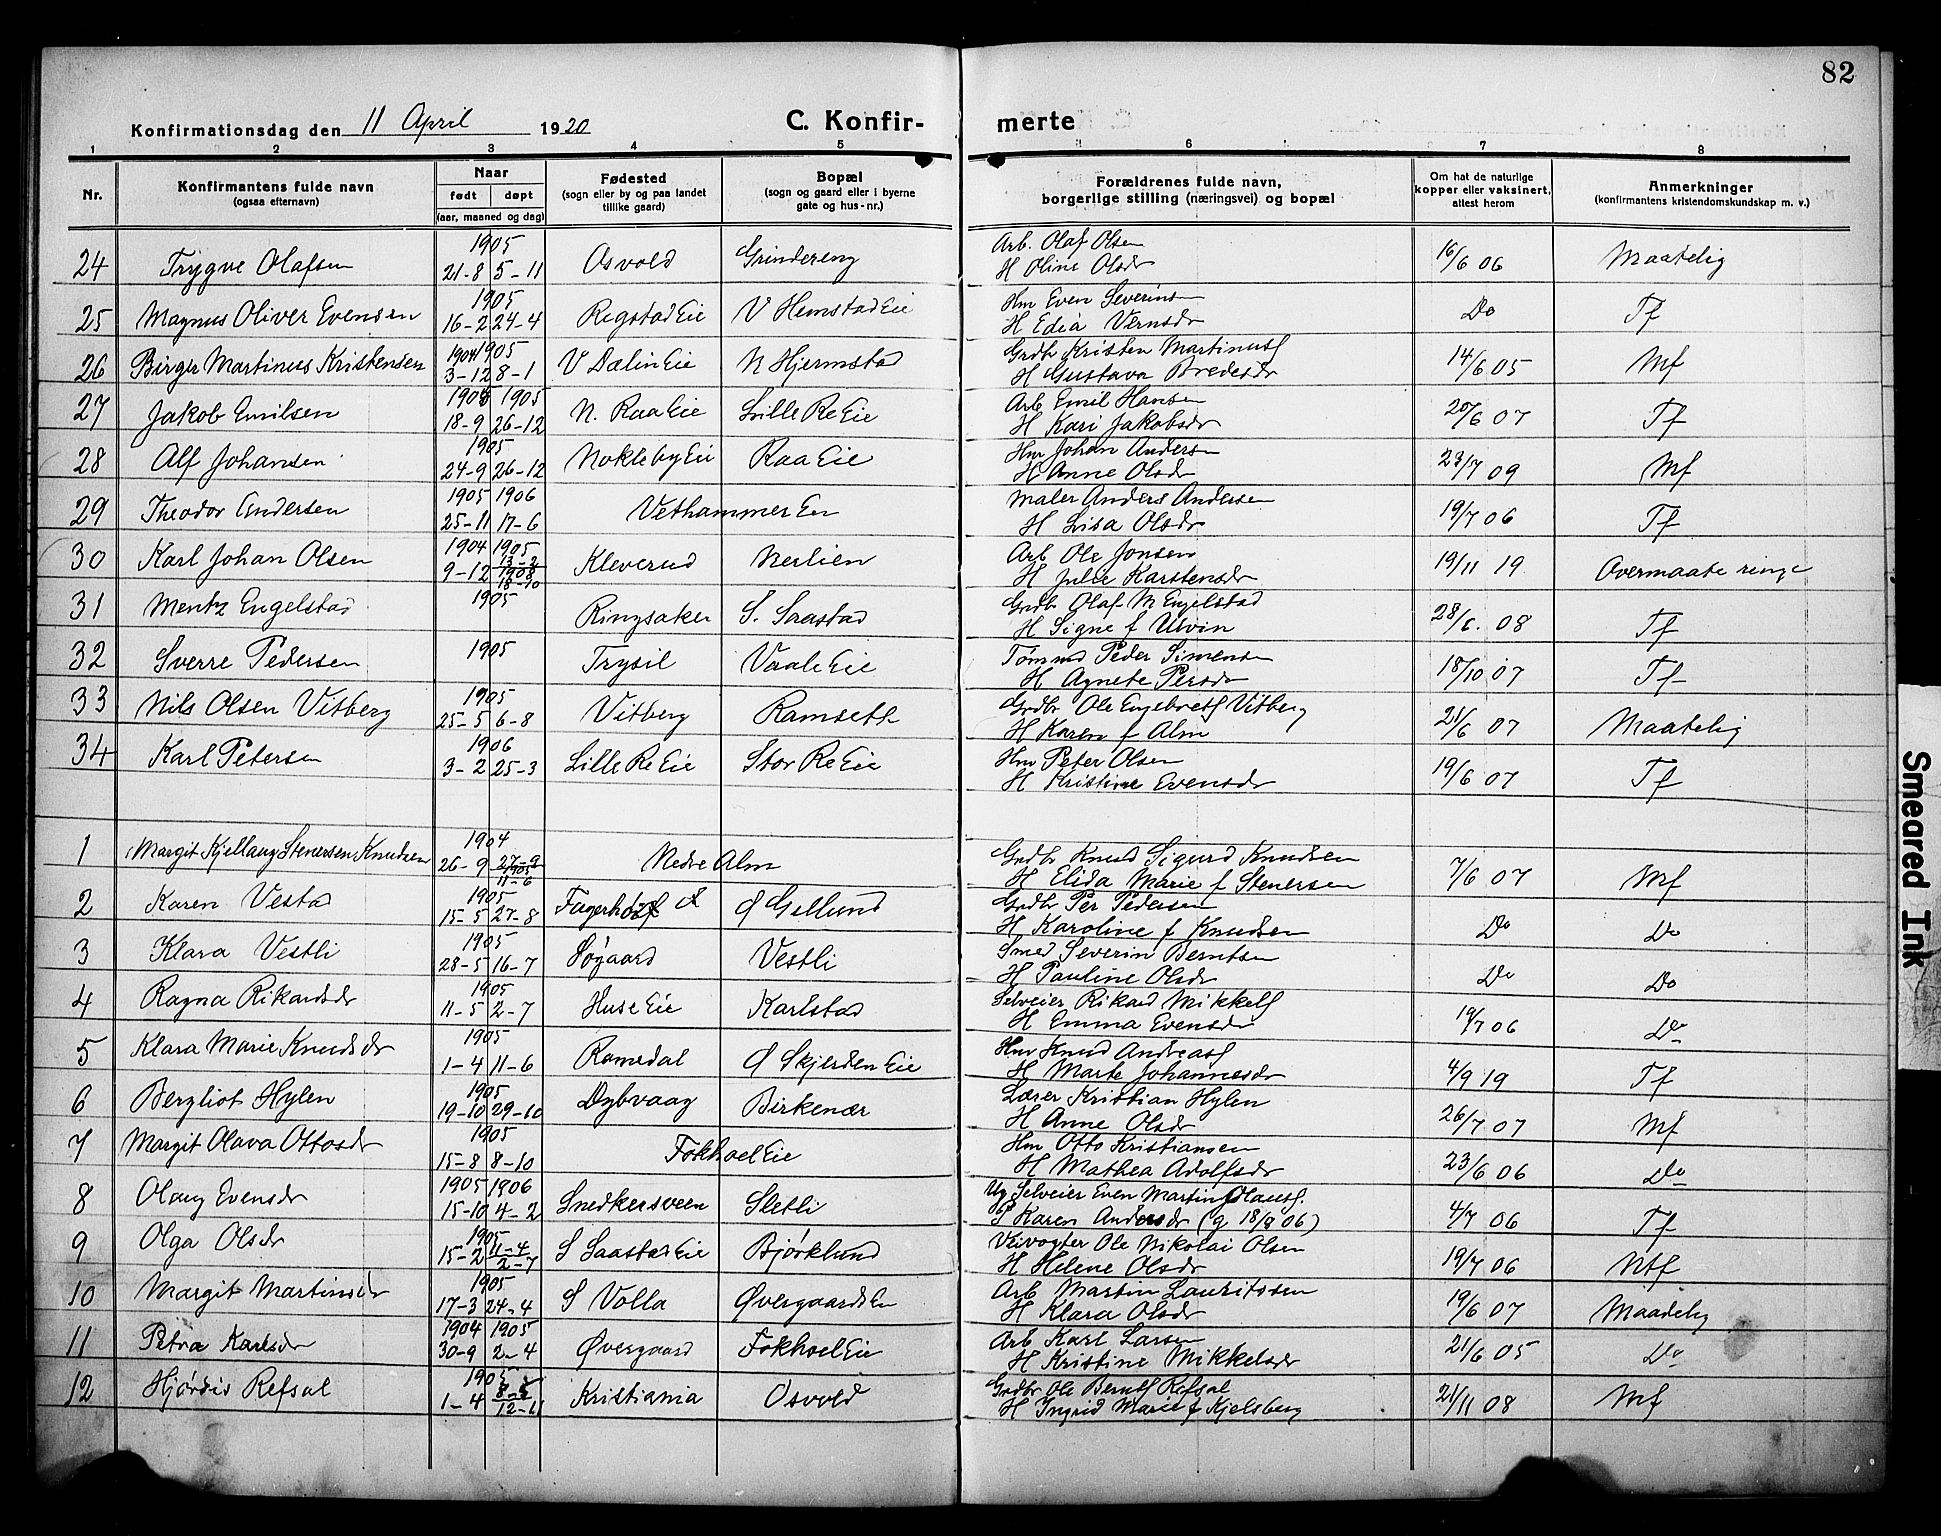 82
Konfirmationsdag den 11 April 1920 C. Konfirmerte
1 2 3 4 5 6 7 8
Nr. Konfirmantens fulde navn (ogsaa efternavn) Naar født døpt (aar, maaned og dag) Fødested (sogn eller by og paa landet tillike gaard) Bopæl (sogn og gaard eller i byerne gate og hus-nr.) Forældrenes fulde navn, borgerlige stilling (næringsvei) og bopæl Om hat de naturlige kopper eller vaksinert, attest herom Anmerkninger (konfirmantens kristendomskundskap m. v.)
24 Trygve Olafsen 1905 21-8 5-11 Osvold Grindereng Arb. Olaf Olsen H Oline Olsdr 16/6 06 Maatelig
25 Magnus Oliver Evensen 1905 16-2 24-4 Rogstad Eie V Hemstad Eie Hm Even Severinsen H Edia Vernsdr Do Tf
26 Birger Martinus Kristensen 1904 1905 3-12 8-1 V Dælin Eie N Hjermstad Grdbr Kristen Martinus H Gustava Bredesdr 14/6 05 Mf
27 Jakob Emilsen 1905 18-9 26-12 N. Raa Eie Lille Re Eie Arb Emil Hansen H Kari Jakobsdr 20/6 07 Tf
28 Alf Johansen 1905 24-9 26-12 Nokleby Eie Raa Eie Hm Johan Andersen H Anne Olsdr 23/7 09 Mf
29 Theodor Andersen 1905 1906 25-11 17-6 Vethammer En Maler Anders Andersen H Lisa Olsdr 19/7 06 Tf
30 Karl Johan Olsen 1904 1905 9-12 13-2 1908 18-10 Kleverud Nerlien Arb Ole Jonsen H Julie Karstensdr 19/11 19 Overmaate ringe
31 Mentz Engelstad 1905 Ringsaker S. Saastad Grdbr Olaf M Engelstad H Signe f Ulvin 28/6. 08 Tf
32 Sverre Pedersen 1905 Trysil Vaale Eie Tømmd Peder Simensen H Agnete Persdr 18/10 07 Tf
33 Nils Olsen Vitberg 1905 25-5 6-8 Vitberg Ramseth Grdbr Ole Engebrets Vitberg H Karen f Alm 21/6 07 Maatelig
34 Karl Petersen 1906 3-2 25-3 Lille Re Eie Stor Re Eie Hm Peter Olsen H Kristine Evensdr 19/6 07 Tf
1 Margit Kjellaug Stenersen Knudsen 1904 26-9 27-9 1905 11-6 Nedre Alm Grdbr Knud Sigurd Knudsen H Elida Marie f Stenersen 7/6 07 Mf
2 Karen Vestad 1905 15-5 27-8 Fagerhøi Ø Gellund Grdbr Per Pedersen H Karoline f Knudsen Do Do
3 Klara Vestli 1905 28-5 16-7 Søgaard Vestli Smed Severin Berntsen H Pauline Olsdr Do Do
4 Ragna Rikardsdr 1905 11-5 2-7 Huse Eie Karlstad Selveier Rikard Mikkels H Emma Evensdr 19/7 06 Do
5 Klara Marie Knudsdr 1905 1-4 11-6 Romedal Ø Skjerden Eie Hm Knud Andreas H Marte Johannesdr 4/9 19 Tf
6 Bergliot Hylen 1905 19-10 29-10 Dybvaag Birkenær Lærer Kristian Hylen H Anne Olsdr 26/7 07 Mf
7 Margit Olava Ottosdr 1905 15-8 8-10 Fokhoel Eie Hm Otto Kristiansen H Mathea Adolfsdr 23/6 06 Do
8 Olaug Evensdr 1905 1906 15-10 4-2 Snedkersveen Sletli Ug Selveier Even Martin Olaus. P Karen Andersdr (g 18/8 06) 4/7 06 Tf
9 Olga Olsdr 1905 15-2 11-4 2-7 S Saastad Eie Bjørklund Veivogter Ole Nikolai Olsen H Helene Olsdr 19/7 06 Mtf
10 Margit Martinsdr 1905 17-3 24-4 S Volla Øvergaards En Arb Martin Lauritssen H Klara Olsdr 19/6 07 Maadelig
11 Petra Karlsdr 1904 1905 30-9 2-4 Øvergaard Fokhoel Eie Arb Karl Larsen H Kristine Mikkelsdr 21/6 05 Do
12 Hjørdis Refsal 1905 1-4 12-11 Kristiania Osvold Grdbr Ole Bernts Refsal H Ingrid Marie f Kjelsberg 21/11 08 Mf
Smeared Ink